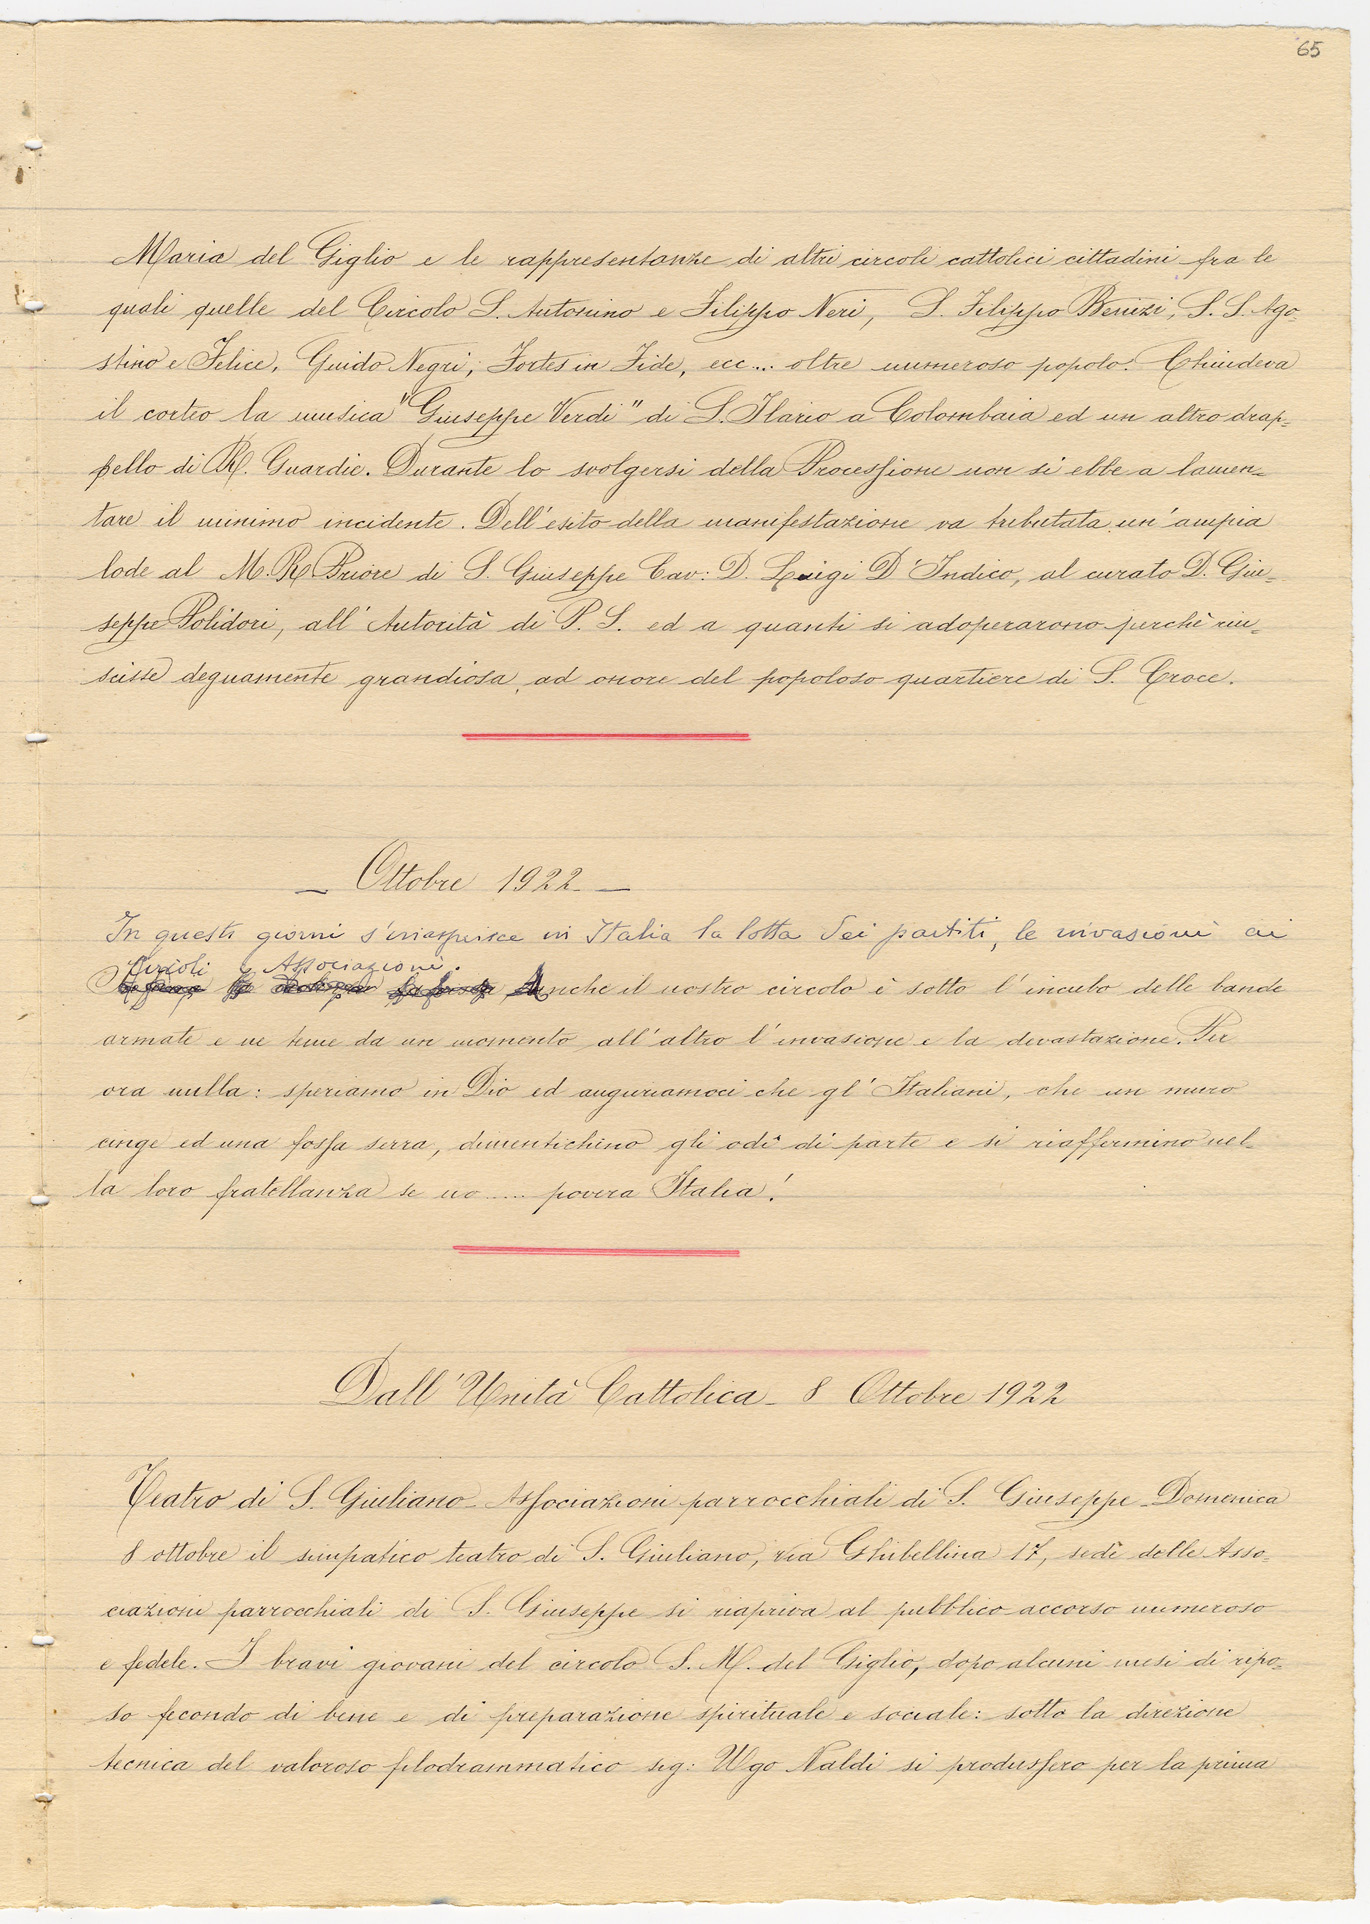 65
Maria del Giglio e le rappresentanze di altri circoli cattolici cittadini fra le
quali quelle del Circolo S. Antonino e Filippo Neri, S. Filippo Benizi, S. S. Ago=
stino e Felice, Guido Negri, Fortes in Fide, ecc... oltre numeroso popolo. Chiudeva
il corteo la musica "Giuseppe Verdi" di S. Ilario a Colombaia ed un altro drap=
pello di R. Guardie. Durante lo svolgersi della Processione non si ebbe a lamen=
tare il minimo incidente. Dell'esito della manifestazione va tributata un'ampia
lode al M. R. Priore di S. Giuseppe Cav: D. Luigi D'Indico, al curato D. Giu=
seppe Polidori, all'Autorità di P. S. ed a quanti si adoperarono perchè riu=
scisse degnamente grandiosa, ad onore del popoloso quartiere di S. Croce.
– Ottobre 1922 –
In questi giorni s'inasprisce in Italia la lotta dei partiti, le invasioni ai
Circoli e Associazioni.
Anche il nostro circolo è sotto l'incubo delle bande
armate e ne teme da un momento all'altro l'invasione e la devastazione. Per
ora nulla: speriamo in Dio ed auguriamoci che gl'Italiani, che un muro
cinge ed una fossa serra, dimentichino gli odî di parte e si riaffermino nel=
la loro fratellanza se no..... povera Italia!
Dall'Unità Cattolica - 8 Ottobre 1922
Teatro di S. Giuliano - Associazioni parrocchiali di S. Giuseppe - Domenica
8 ottobre il simpatico teatro di S. Giuliano, via Ghibellina 17, sede delle Asso=
ciazioni parrocchiali di S. Giuseppe si riapriva al pubblico accorso numeroso
e fedele. I bravi giovani del circolo S. M. del Giglio, dopo alcuni mesi di ripo=
so fecondo di bene e di preparazione spirituale e sociale: sotto la direzione
tecnica del valoroso filodrammatico sig: Ugo Naldi si produssero per la prima